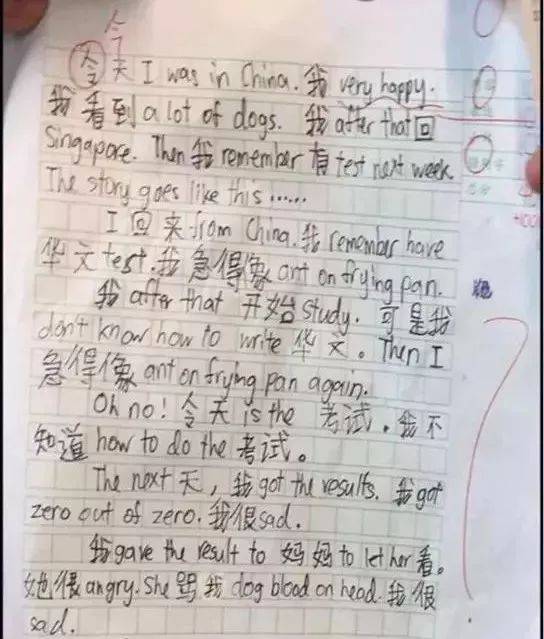 今
今天 I was in China. 我 very happy.
我看到 a lot of dogs. 我 after that 回
Singapore. Then 我 remember 有 test next week.
The story goes like this ......
I 回来 from China. 我 remember have
华文 test. 我急得像 ant on frying pan.
我 after that 开始 study. 可是我
don't know how to write 华文。Then I
急得像 ant on frying pan again.
Oh no! 今天 is the 考试. 我不
知道 how to do the 考试。
The next 天, 我 got the results. 我 got
zero out of zero. 我很 sad.
我 gave the result to 妈妈 to let her 看。
她很 angry. She 骂我 dog blood on head. 我很
sad.